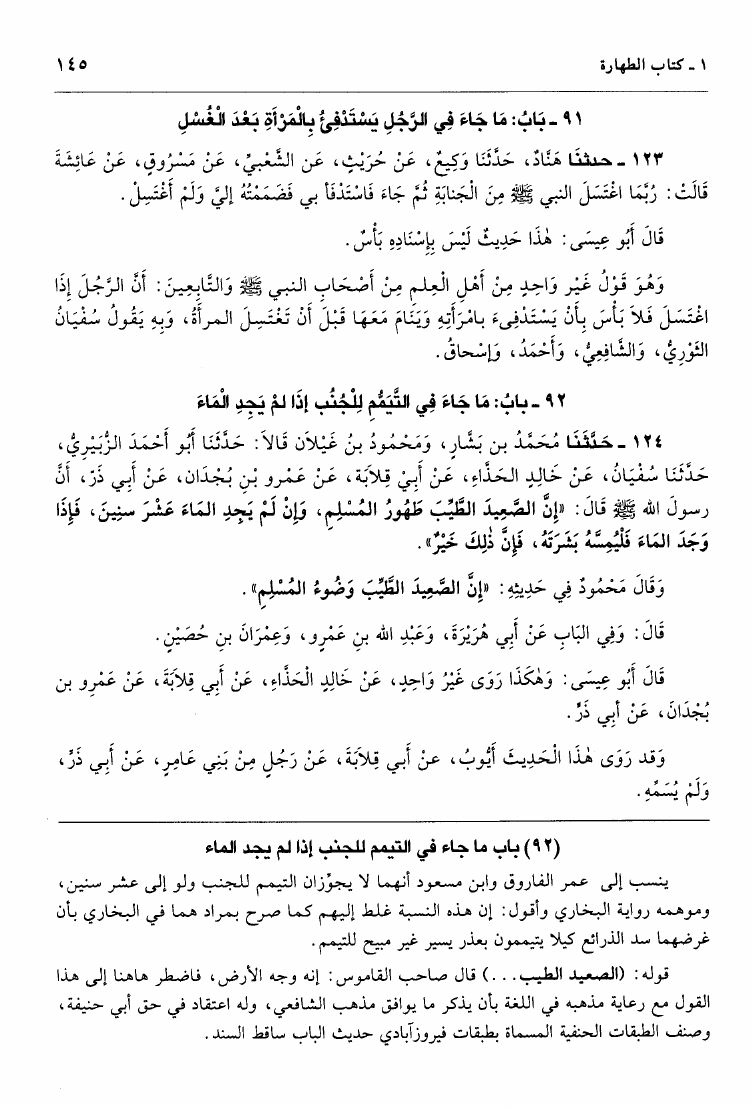 ١ ـ كتاب الطهارة ١٤٥
٩١ ـ بَابُ: مَا جَاءَ فِي الرَّجُلِ يَسْتَدْفِئُ بِالْمَرْأَةِ بَعْدَ الْغُسْلِ
١٢٣ ـ حدثنَا هَنَّادٌ، حَدَّثَنَا وَكِيعٌ، عَنْ حُرَيْثٍ، عَنِ الشَّعْبِيِّ، عَنْ مَسْرُوقٍ، عَنْ عَائِشَةَ
قَالَتْ: رُبَّمَا اغْتَسَلَ النبي ﷺ مِنَ الْجَنَابَةِ ثُمَّ جَاءَ فَاسْتَدْفَأَ بي فَضَمَمْتُهُ إِليَّ وَلَمْ أَغْتَسِلْ.
قَالَ أَبُو عِيسَى: هٰذَا حَدِيثٌ لَيْسَ بِإِسْنَادِهِ بَأْسٌ.
وَهُوَ قَوْلُ غَيْرِ وَاحِدٍ مِنْ أَهْلِ الْعِلمِ مِنْ أَصْحَابِ النبي ﷺ وَالتَّابِعِينَ: أَنَّ الرَّجُلَ إِذَا
اغْتَسَلَ فَلاَ بَأْسَ بِأَنْ يَسْتَدْفِىءَ بامْرَأَتِهِ وَيَنَامَ مَعَهَا قَبْلَ أَنْ تَغْتَسِلَ المرأَةُ، وَبِهِ يَقُولُ سُفْيَانُ
الثَوْرِيُّ، وَالشَّافِعِيُّ، وَأَحْمَدُ، وَإِسْحاقُ.
٩٢ ـ بابُ: مَا جَاءَ فِي التَّيَمُّمِ لِلْجُنُبِ إِذَا لمْ يَجِدِ الْمَاءَ
١٢٤ ـ حَدَّثَنَا مُحَمَّدُ بن بَشَّارٍ، وَمَحْمُودُ بنُ غَيْلاَنَ قَالاَ: حَدَّثَنَا أَبُو أَحْمَدَ الزُّبَيْرِيُّ،
حَدَّثَنَا سُفْيَانُ، عَنْ خَالِدِ الحَذَّاءِ، عَنْ أَبِيْ قِلاَبَةَ، عَنْ عَمْرِو بْنِ بُجْدَان، عَنْ أَبِي ذَرّ، أَنَّ
رسولَ الله ﷺ قَالَ: «إِنَّ الصَّعِيدَ الطَّيِّبَ طَهُورُ المُسْلِمِ، وَإِنْ لَمْ يَجِدِ المَاءَ عَشْرَ سنِينَ، فَإِذَا
وَجَدَ المَاءَ فَلْيُمِسَّهُ بَشَرَتَهُ، فَإِنَّ ذٰلِكَ خَيْرٌ».
وَقَالَ مَحْمُودٌ فِي حَدِيثِهِ: «إِنَّ الصَّعِيدَ الطَّيِّبَ وَضُوءُ المُسْلِمِ».
قَالَ: وَفِي البَابِ عَنْ أَبِي هُرَيْرَةَ، وَعَبْدِ الله بنِ عَمْرٍو، وَعِمْرَانَ بنِ حُصَيْنٍ.
قَالَ أَبُو عِيسَى: وَهٰكَذَا رَوَى غَيْرُ وَاحِدٍ، عَنْ خَالِدٍ الْحَذَّاءِ، عَنْ أَبِي قِلاَبَةَ، عَنْ عَمْرِو بن
بُجْدَانَ، عَنْ أَبِي ذَرٍّ.
وَقد رَوَى هٰذَا الْحَدِيثَ أَيُّوبُ، عنْ أَبي قِلاَبَةَ، عَنْ رَجُلٍ مِنْ بَنِي عَامِرٍ، عَنْ أَبِي ذَرٍّ،
وَلَمْ يُسَمِّهِ.
(٩٢) باب ما جاء في التيمم للجنب إذا لم يجد الماء
ينسب إلى عمر الفاروق وابن مسعود أنهما لا يجوِّزان التيمم للجنب ولو إلى عشر سنين،
وموهمه رواية البخاري وأقول: إن هذه النسبة غلط إليهم كما صرح بمراد هما في البخاري بأن
غرضهما سد الذرائع كيلا يتيممون بعذر يسير غير مبيح للتيمم.
قوله: (الصعيد الطيب. . .) قال صاحب القاموس: إنه وجه الأرض، فاضطر هاهنا إلى هذا
القول مع رعاية مذهبه في اللغة بأن يذكر ما يوافق مذهب الشافعي، وله اعتقاد في حق أبي حنيفة،
وصنف الطبقات الحنفية المسماة بطبقات فيروزآبادي حديث الباب ساقط السند.